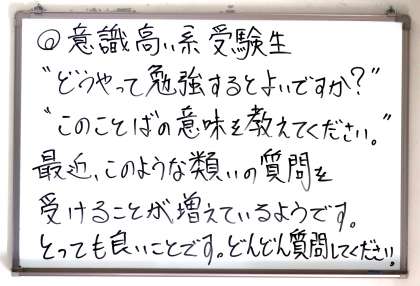 ◎意識高い系受験生
"どうやって勉強するとよいですか?"
"このことばの意味を教えてください。"
最近、このような類いの質問を
受けることが増えているようです。
とっても良いことです。どんどん質問してください。